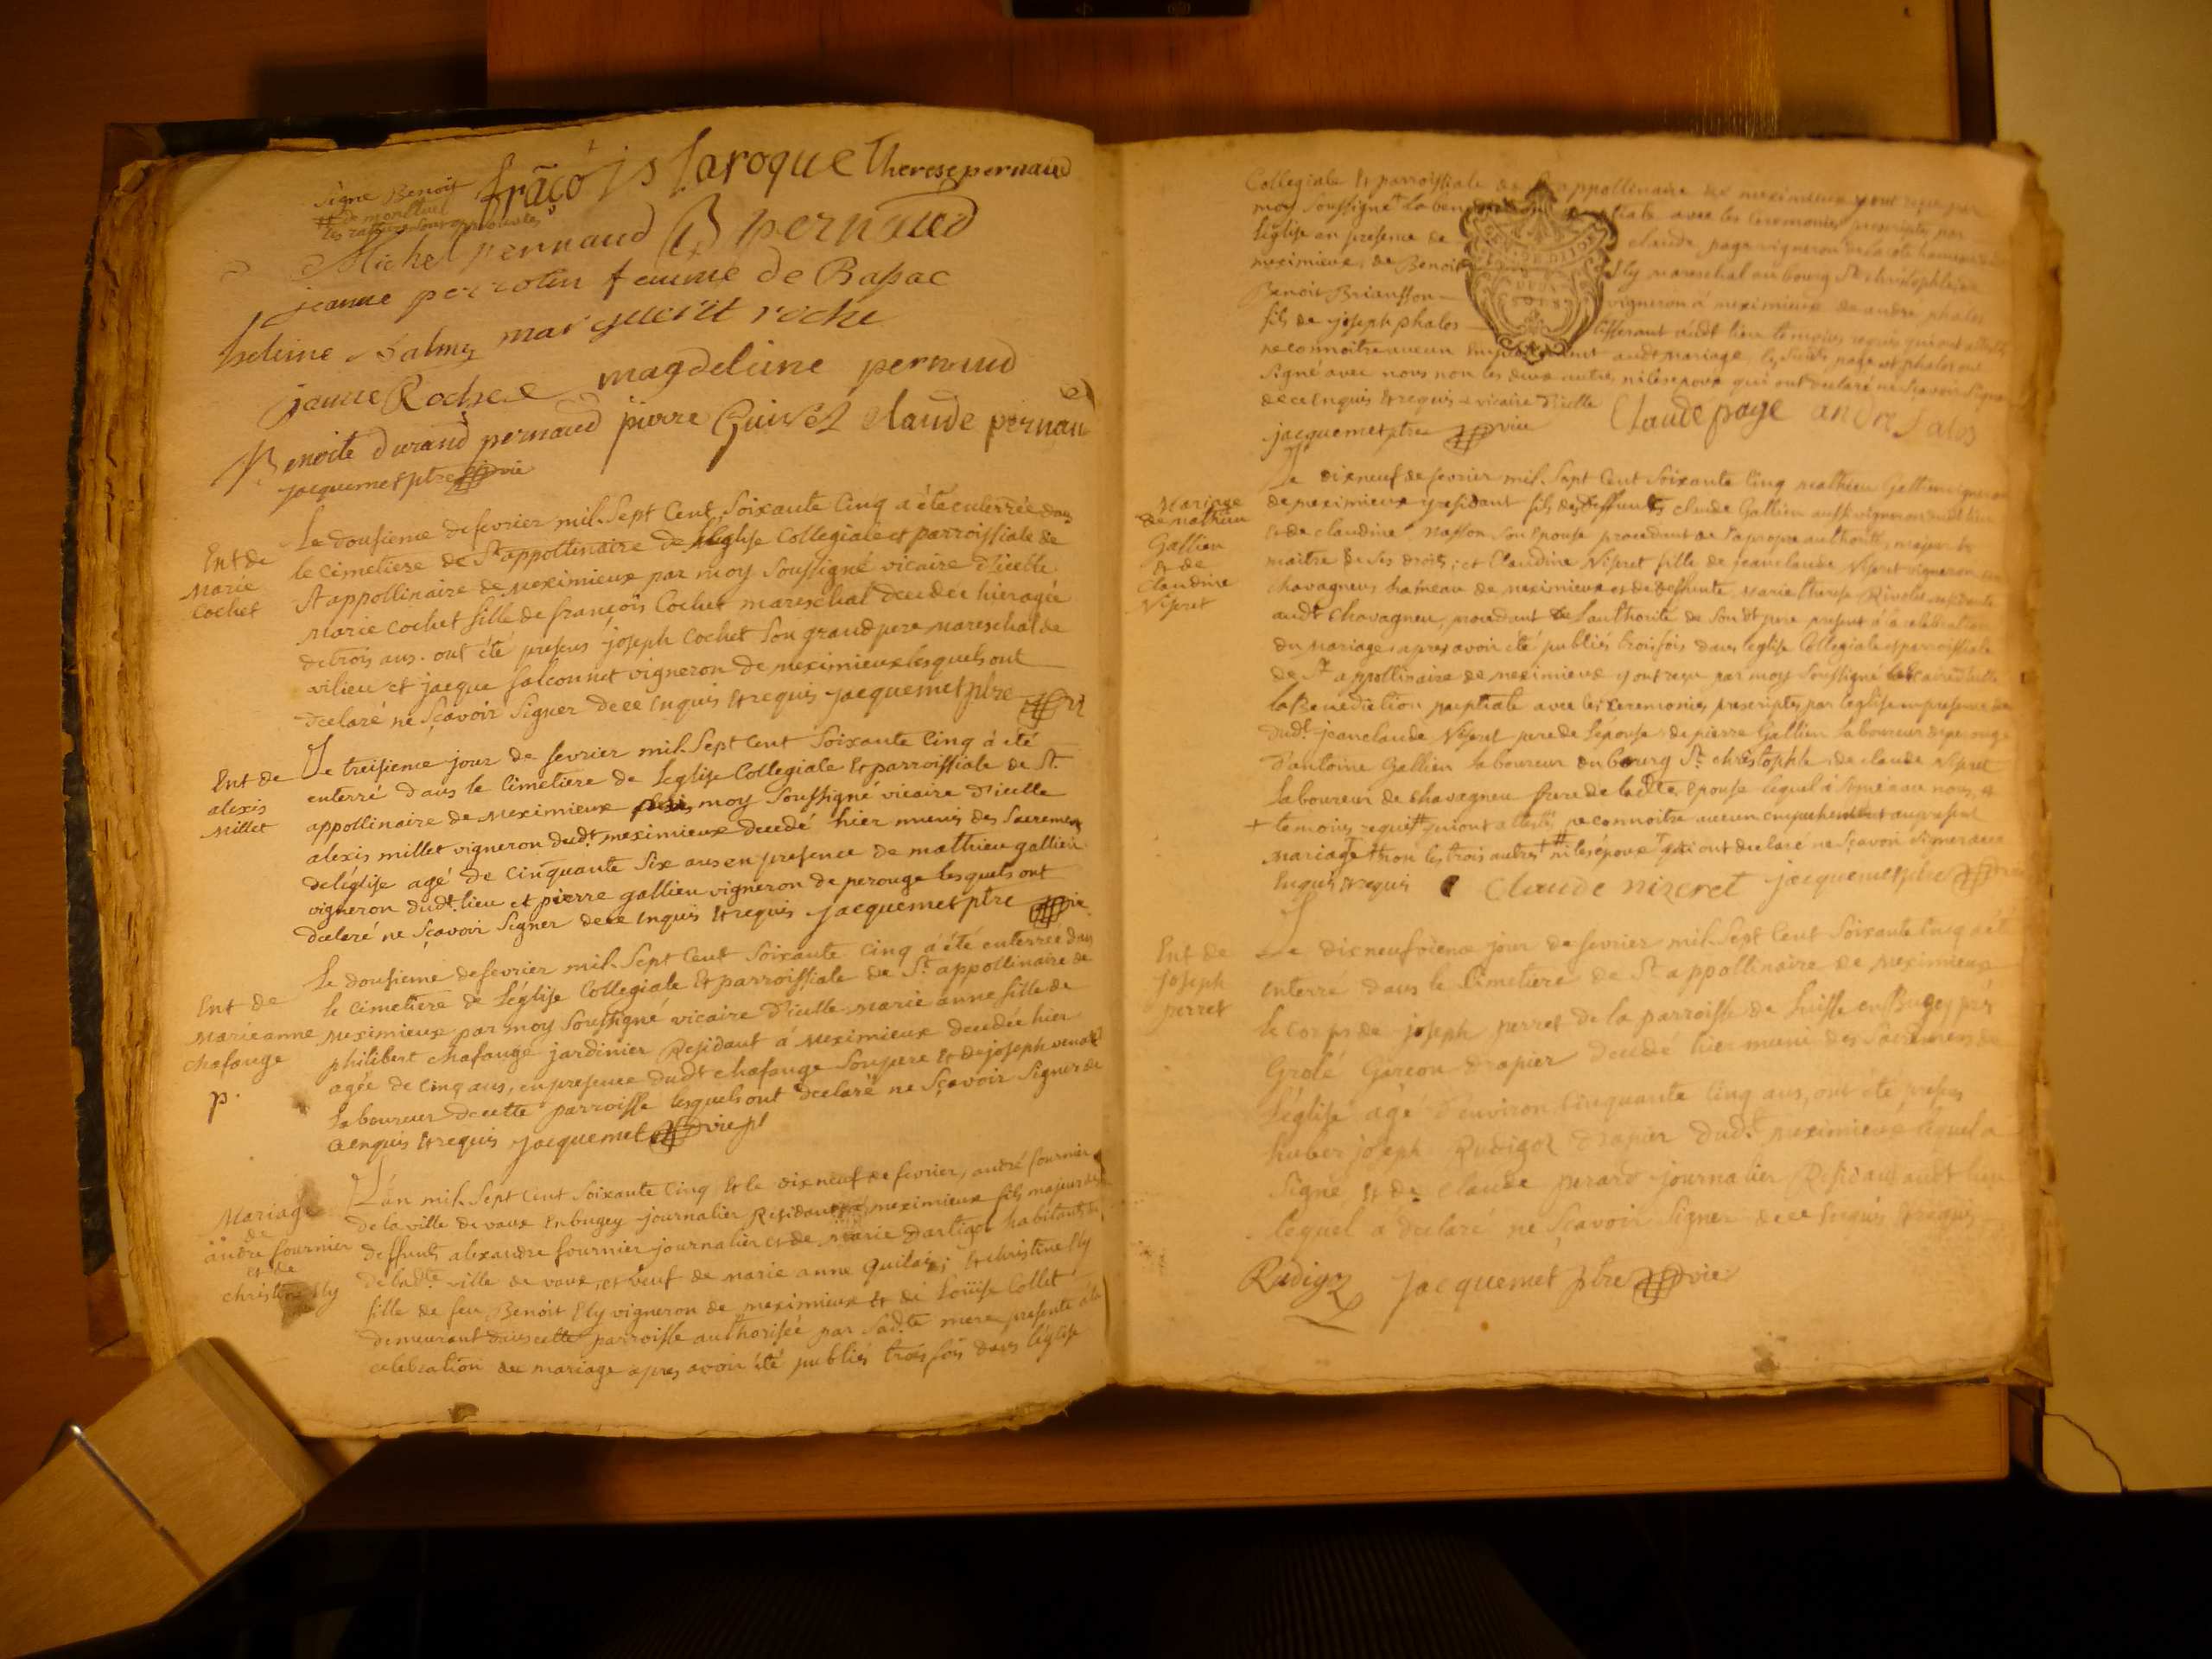 signe Benoit
frãcois laroque therese pernaud
Michel pernaud B pernaud
jeanne perrotin femme de Bassac
marguerit roche
jeanne Roche magdeleine pernaud
Benoite durand pernaud pierre Guivet claude pernau
jacquemet ptre vic
Ent de
Marie
Cochet
Le dousieme defevrier mil. Sept Cent Soixante Cinq a été enterrée dans
le cimetiere de St appollinaire de l'eglise Collegiale et parroissiale de
St appollinaire de Meximieux par moy Soussigné vicaire d'icelle
Marie Cochet fille de françois Cochet mareschal decedée hier agée
de trois ans. ont été presens joseph Cochet Son grand pere mareschal de
vilieu et jacque falconnet vigneron de meximieux lesquels ont
declaré ne Sçavoir Signer de ce Enquis Et requis jacquemet ptre
Ent de
alexis
Millet
Le treisieme jour de fevrier mil. Sept Cent Soixante Cinq à été
enterré dans le Cimetiere de L'eglise Collegiale Et parroissiale de St.
appollinaire de Meximieux moy Soussigné vicaire d'icelle
alexis millet vigneron dudt meximieux decedé hier munis des Sacremens
de l'église agé de Cinquante Six ans en presence de mathieu gallien
vigneron dudt. lieu et pierre gallien vigneron de perouge lesquels ont
declaré ne Sçavoir Signer de ce Enquis Et requis jacquemet ptre vic
Ent de
Marieanne
Chafange
p.
Le dousieme defevrier mil. Sept Cent Soixante Cinq à été enterrée dans
le cimetiere de L'église Collegiale Et parroissiale de St. appollinaire de
Meximieux par moy Soussigné vicaire d'icelle Marie anne fille de
philibert chafange jardinier Residant à Meximieux decedée hier
agée de cinq ans, en presence dudt chafange Son pere Et de joseph
Laboureur de cette parroisse lesquels ont declaré ne Sçavoir Signer de
ce enquis Et requis jacquemet vic
Mariage
de
andré fournier
et de
christine Ely
L'an mil. Sept Cent Soixante Cinq Et le dix neuf de fevrier, andré fournier
de la ville de vaux En bugey journalier Residant à meximieux fils majeur de
deffunt alexandre fournier journalier et de Marie habitants de
de ladte ville de vaux, et veuf de Marie anne Et christine Ely
fille de feu Benoit Ely vigneron de meximieux Et de Loüise Collet
demeurant dans cette parroisse authorisée par Sadte mere presente à la
celebration du mariage apres avoir été publiés trois fois dans l'église
Collegiale Et parroissiale de St appollinaire de meximieux y ont reçu par
moy Soussigné la benediction nuptiale avec les Ceremonies prescriptes par
l'église en presence de claude page vigneron
meximieux, de Benoit Ely mareschal au bourg St christophle, de
Benoit Briansson vigneron à meximieux de andre phalos
fils de joseph phalos audt lieu temoins requis qui ont attesté
ne connoitre aucun Empechement audt mariage, les page et phalos ont
Signé avec nous non les deux autres ni les epoux qui ont declaré ne Sçavoir Signer
de ce Enquis Et requis vicaire d'icelle Claude page
jacquemet ptre vic
Mariage
de mathieu
Gallien
& de
Claudine
Niseret
Le dixneuf de fevrier mil. Sept Cent Soixante Cinq mathieu Gallien vigneron
de meximieux y residant fils de deffunts claude Gallien aussi vigneron
Et de claudine Nasson Son Epouse procedant de Sa propre authorité, majeur Et
maitre de Ses droits; et Claudine Niseret fille de jean claude Niseret vigneron
chavagneux hameau de meximieux et de deffunte Marie therese
audt chavagneu, procedant de L'authorité de Son dt pere present à la celebration
du Mariage. apres avoir été publiés trois fois dans l'eglise Collegiale et parroissiale
de St appollinaire de meximieux y ont reçu par moy Soussigné vicaire d'icelle
la Benediction nuptiale avec les Ceremonies prescriptes par l'eglise en presence de
dudt. jean claude Niseret pere de L'épouse, de pierre Gallien laboureur de perouge
d'antoine Gallien laboureur du bourg St. christophle, de claude Niseret
laboureur de chavagneu frere de ladte Epouse lequel à Signé avec nous, &
+ temoins requis qui ont attesté ne connoitre aucun empechement au present
mariage non les trois autres ni les époux qui ont declaré ne Sçavoir Signer de ce
Enquis Et requis Claude nizeret jacquemet ptre vic
Ent de
Joseph
perret
Le dixneuvieme jour de fevrier mil. Sept Cent Soixante Cinq a été
Enterré dans le Cimetiere de St appollinaire de Meximieux
le Corps de joseph perret de la parroisse de en Bugey près
Grolé Garcon drapier decedé hier muni des Sacremens de
l'église agé d'environ Cinquante Cinq ans, ont été presens
huber joseph Rudigoz drapier dudt. meximieux lequel a
Signé, Et de Claude perard journalier Residant audt lieu
lequel a declaré ne Sçavoir Signer de ce Enquis Et requis
Rudigoz jacquemet ptre vic